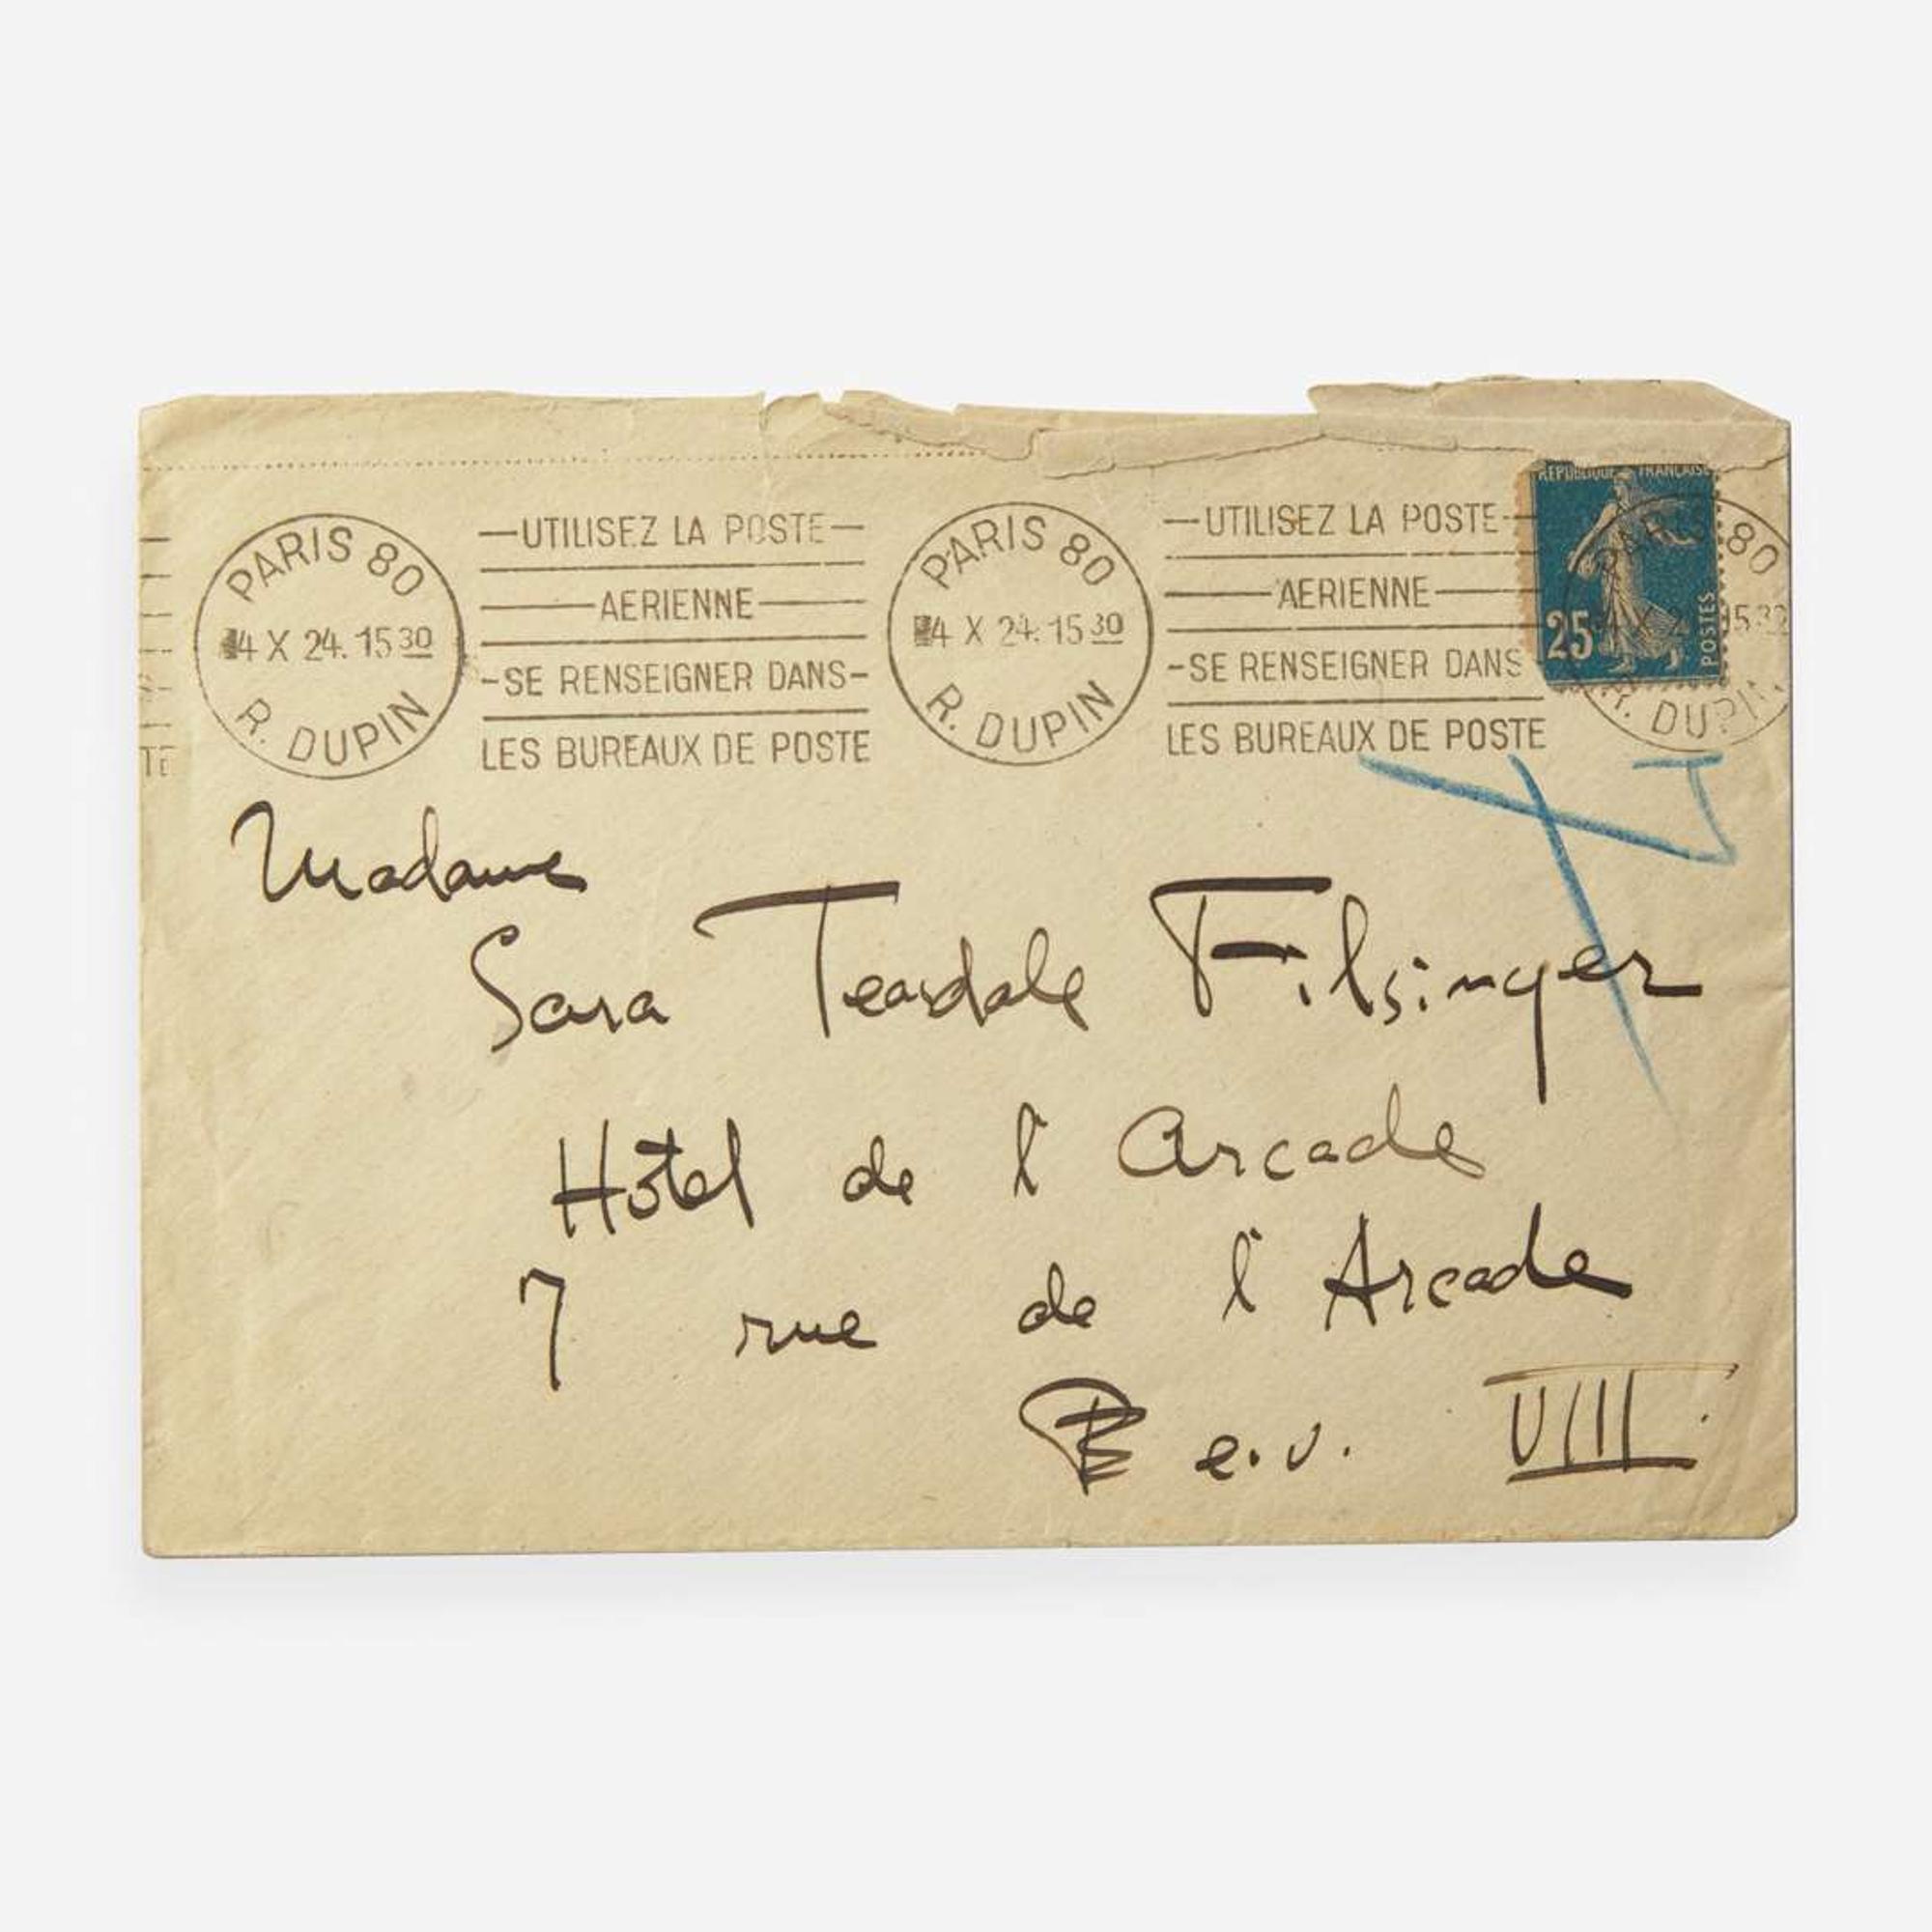 PARIS 80
4 X 24. 15 30
R. DUPIN
UTILISEZ LA POSTE
AERIENNE
SE RENSEIGNER DANS
LES BUREAUX DE POSTE
PARIS 80
4 X 24. 15 30
R. DUPIN
UTILISEZ LA POSTE
AERIENNE
SE RENSEIGNER DANS
LES BUREAUX DE POSTE
REPUBLIQUE FRANCAISE
25
POSTES
80
R. DUPIN
TE
Madame
Sara Teasdale Filsinger
Hôtel de l'Arcade
7 rue de l'Arcade
e.v. VIII